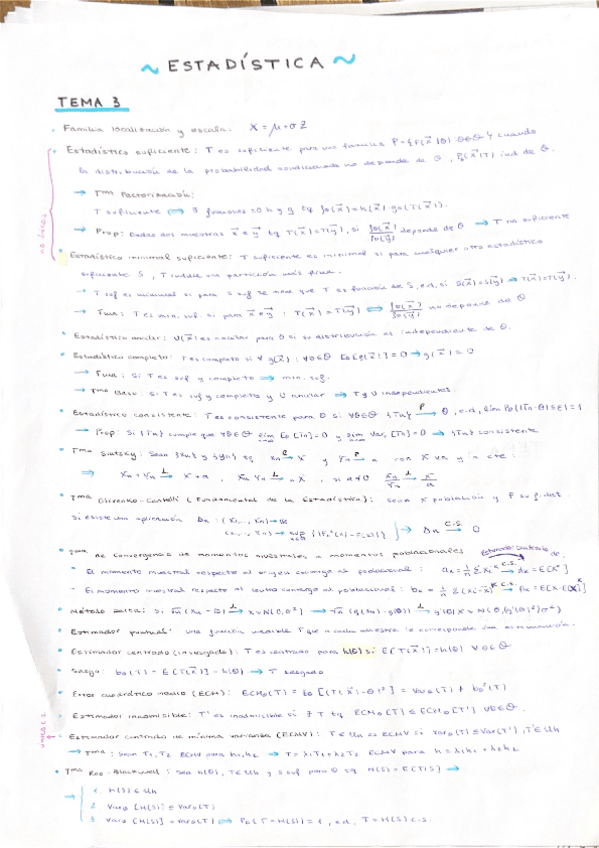 ~ ESTADÍSTICA ~
TEMA 3
· Familia localización y escala: X = μ + σZ
· Estadístico suficiente: T es suficiente para una familia P = {F(x⃗|θ): θ∈Θ} cuando
la distribución de la probabilidad condicionada no depende de θ, Pθ(x⃗|T) ind. de θ.
→ Tma Factorización:
T suficiente ⟺ ∃ funciones ≥0 h y g tq fθ(x⃗) = h(x⃗)·gθ(T(x⃗)).
→ Prop: Dadas dos muestras x⃗ e y⃗ tq T(x⃗)=T(y⃗), si fθ(x⃗)/fθ(y⃗) depende de θ → T no suficiente
· Estadístico minimal suficiente: T suficiente es minimal si para cualquier otro estadístico
suficiente S, T induce una partición más fina.
→ T suf es minimal si para S suf se tiene que T es función de S, e.d, si S(x⃗)=S(y⃗) → T(x⃗)=T(y⃗).
→ Tma: T es min. suf. si para x⃗ e y⃗: T(x⃗)=T(y⃗) ⟺ fθ(x⃗)/fθ(y⃗) no depende de θ
· Estadístico ancilar: U(x⃗) es ancilar para θ si su distribución es independiente de θ.
· Estadístico completo: T es completo si ∀ g(x⃗): ∀θ∈Θ Eθ[g(x⃗)] = 0 → g(x⃗) = 0
→ Tma: Si T es suf y completo → min. suf.
→ Tma Basu: Si T es suf y completo y U ancilar → T y U independientes.
· Estadístico consistente: T es consistente para θ si ∀θ∈Θ {Tn} P→ θ, e.d, lim Pθ(|Tn-θ|≤ε)=1
→ Prop: Si {Tn} cumple que ∀θ∈Θ lim Eθ[Tn]=θ y lim Varθ[Tn]=0 → {Tn} consistente
· Tma Slutsky: Sean {Xn} y {Yn} tq Xn L→ X y Yn P→ a con X va y a cte
⇒ Xn+Yn L→ X+a, Xn Yn L→ aX, si a≠0 Xn/Yn L→ X/a
· Tma Glivenko-Cantelli (Fundamental de la Estadística): Sean X población y F su f. dist.
Si existe una aplicación Δn: (X1, ..., Xn) →
→ C.S. 0
· Tma de convergencia de momentos muestrales a momentos poblacionales
· El momento muestral respecto al origen converge al poblacional: an = 1/n Σ Xi^k C.S.→ αk = E[X^k]
· El momento muestral respecto al centro converge al poblacional: bn = 1/n Σ(Xi-X̄)^k C.S.→ βk = E[(X-E[X])^k]
· Método Delta: Si √n(Xn-θ) L→ X~N(0,σ²) → √n(g(Xn)-g(θ)) L→ g'(θ)X ~ N(0,[g'(θ)]²σ²)
· Estimador puntual: una función medible T que a cada muestra le corresponde una
· Estimador centrado (insesgado): T es centrado para h(θ) si E[T(x⃗)]=h(θ) ∀θ∈Θ
· Sesgo: b0(T) = E[T(x⃗)] - h(θ) → T sesgado
· Error cuadrático medio (ECM): ECMθ(T) = Eθ[(T(x⃗)-θ)²] = Varθ(T) + bθ²(T)
· Estimador inadmisible: T' es inadmisible si ∃ T tq ECMθ[T] ≤ ECMθ[T'] ∀θ∈Θ.
· Estimador centrado de mínima varianza (ECMV): T∈Uh es ECMV si Varθ(T) ≤ Varθ(T'), T'∈Uh
→ Tma: Sean T1, T2 ECMV para h1, h2 → T = λ1T1+λ2T2 ECMV para h = λ1h1+λ2h2
· Tma Rao-Blackwell: Sea h(θ), T∈Uh y S suf para θ tq H(S) = E(T|S) →
1. H(S) ∈ Uh
2. Varθ[H(S)] ≤ Varθ(T)
3. Varθ[H(S)] = Varθ(T) ⟺ Pθ(T=H(S)) = 1, e.d, T = H(S) c.s.